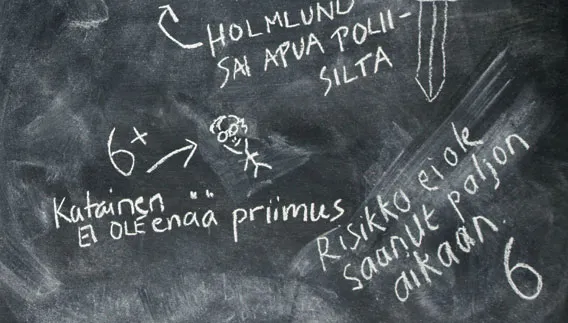 HOLMLUND
SAI APUA POLII-
SILTA
6+
Katainen
EI OLE enää priimus
Risikko ei ole
saanut paljon
aikaan.
6